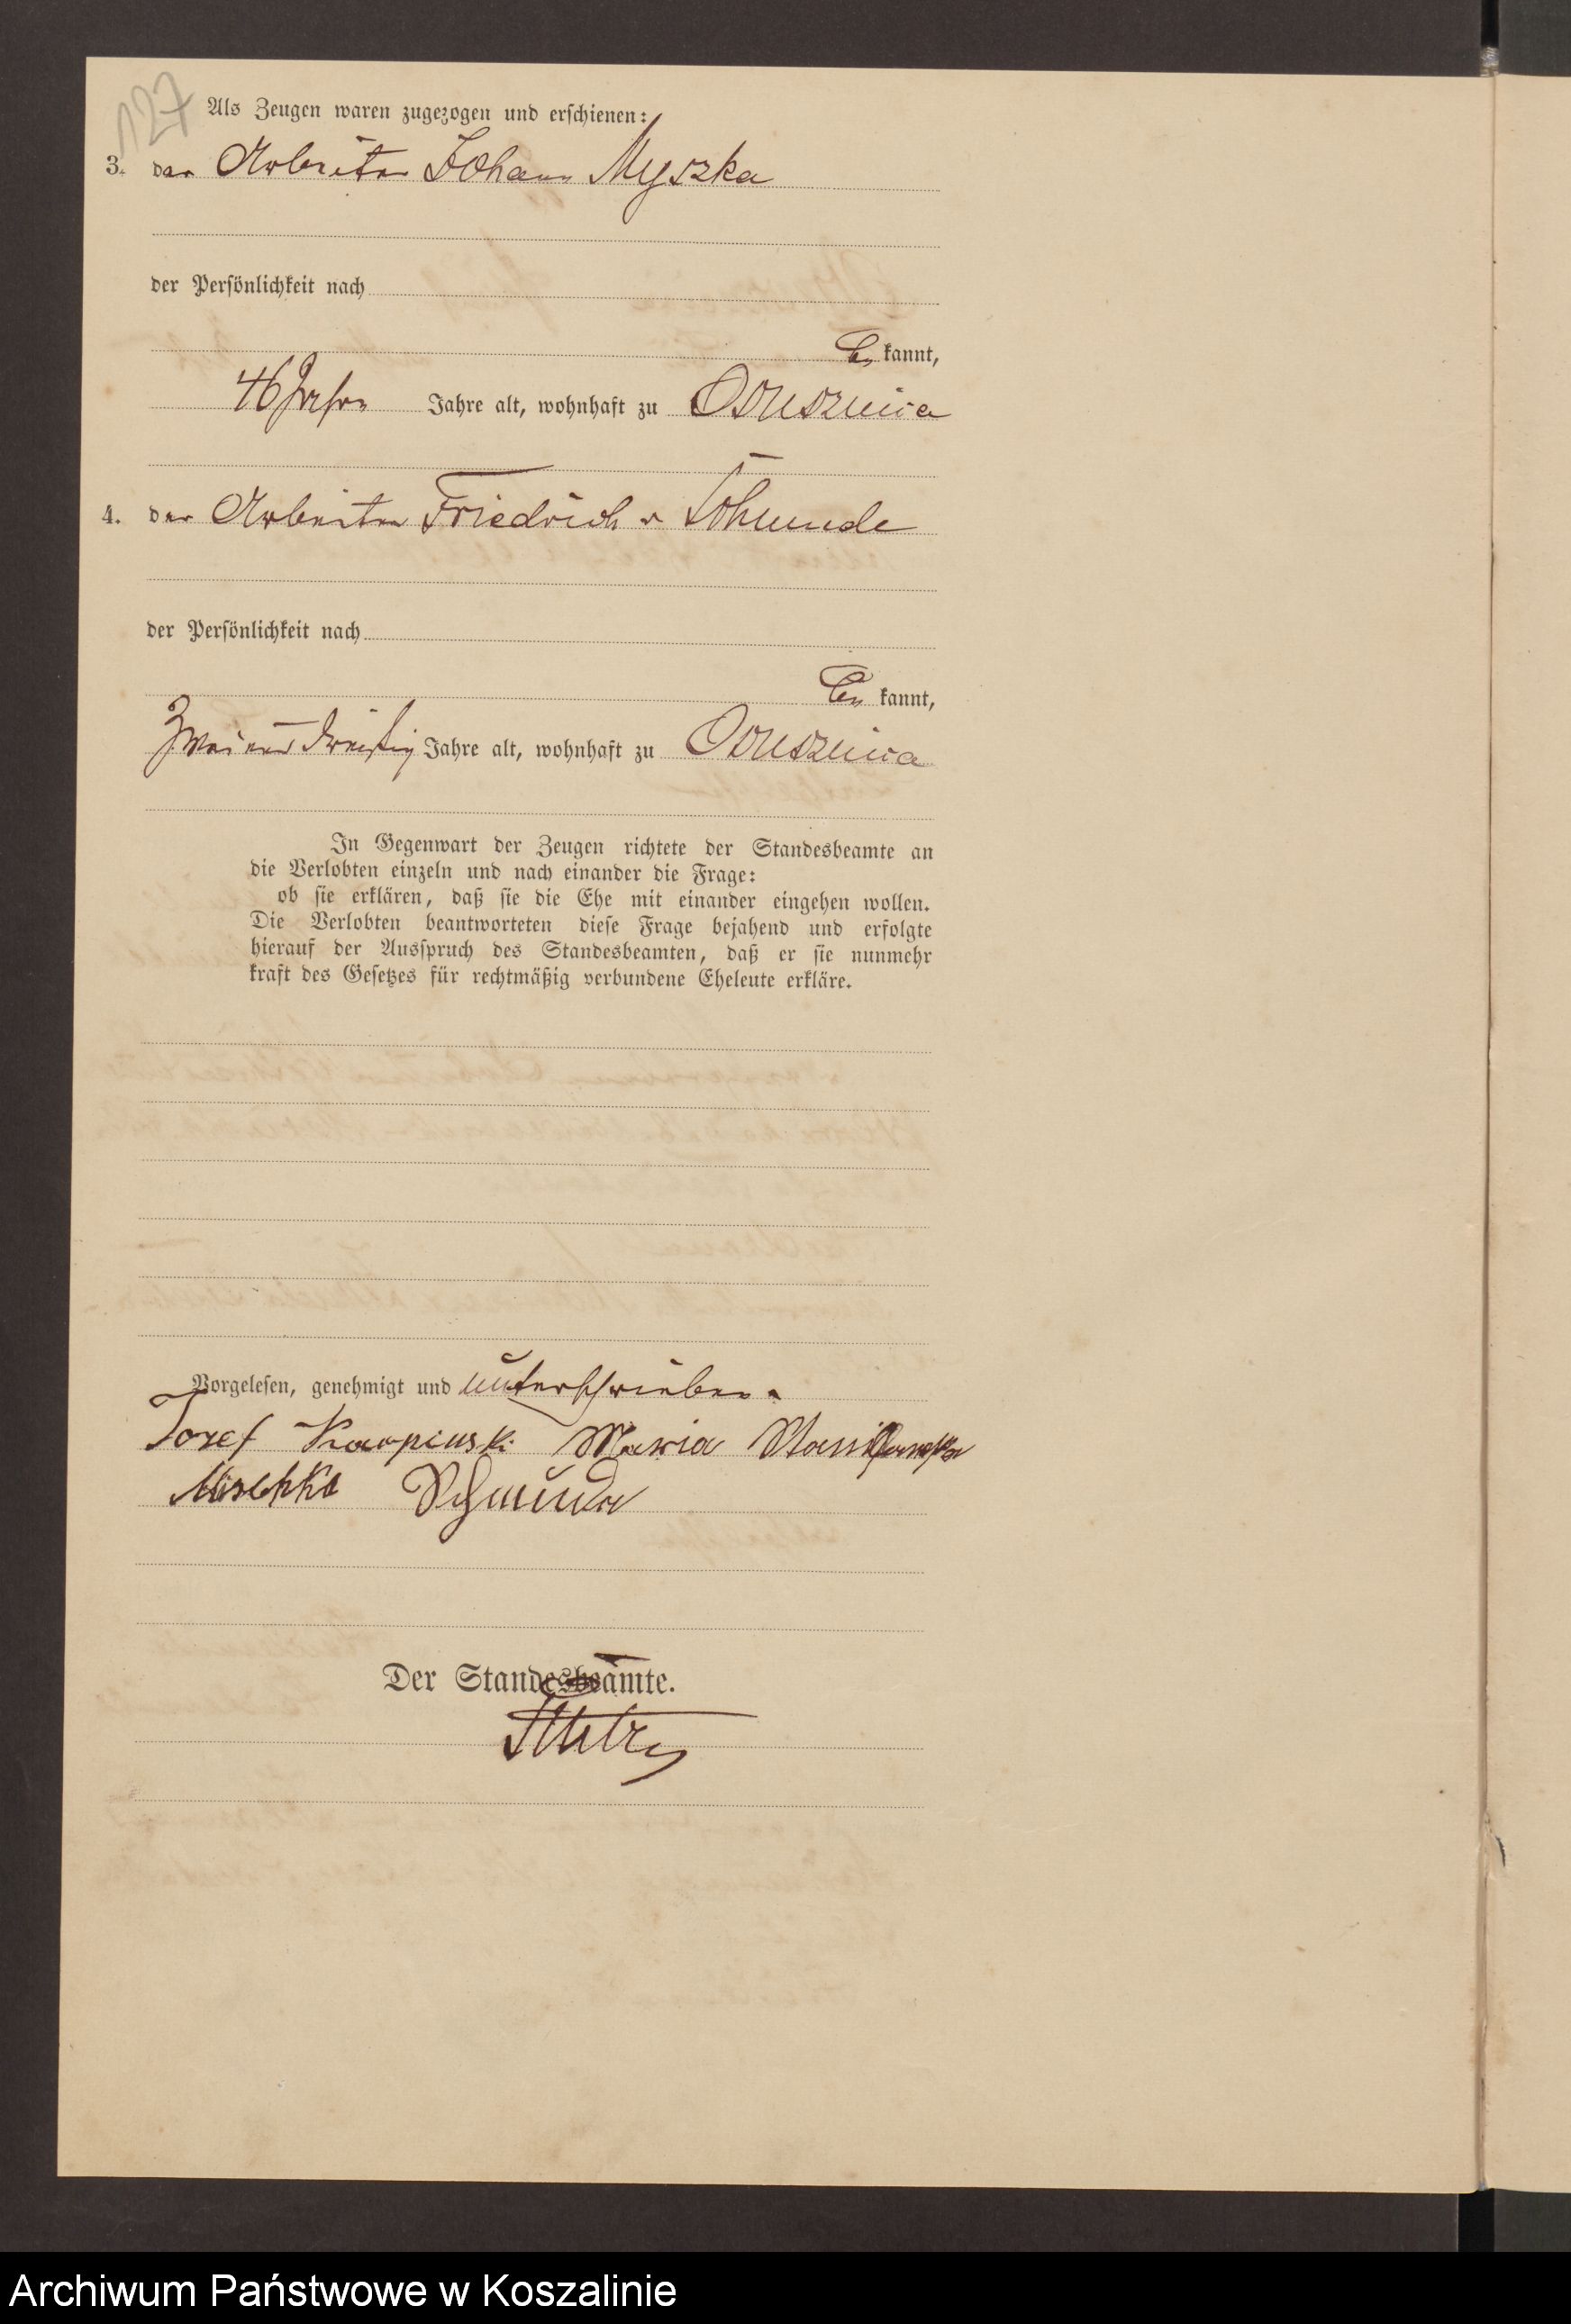 127
Als Zeugen waren zugezogen und erschienen:
3. der Arbeiter Johann Myszka
der Persönlichkeit nach
be kannt,
46 Jahre Jahre alt, wohnhaft zu Osusznica
4. der Arbeiter Friedrich Schmude
der Persönlichkeit nach
be kannt,
Zwei und dreißig Jahre alt, wohnhaft zu Osusznica
In Gegenwart der Zeugen richtete der Standesbeamte an
die Verlobten einzeln und nach einander die Frage:
ob sie erklären, daß sie die Ehe mit einander eingehen wollen.
Die Verlobten beantworteten diese Frage bejahend und erfolgte
hierauf der Ausspruch des Standesbeamten, daß er sie nunmehr
kraft des Gesetzes für rechtmäßig verbundene Eheleute erkläre.
Vorgelesen, genehmigt und unterschrieben.
Jozef Karpinski Maria
Mischke Schmude
Der Standesbeamte.
Archiwum Państwowe w Koszalinie